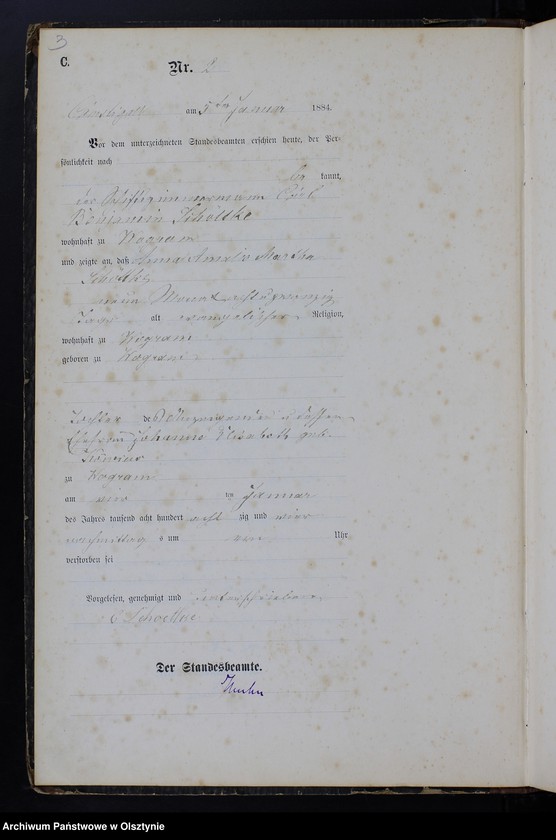 3
C.
Nr. 2
am 5ten Januar 1884.
Vor dem unterzeichneten Standesbeamten erschien heute, der Per-
sönlichkeit nach
kannt,
der Carl
Benjamin Schöttke
wohnhaft zu Kogram
und zeigte an, daß Anna Amalie Martha
neun Monat achtundzwanzig
Tage alt evangelischer Religion,
wohnhaft zu Kogram
geboren zu Kogram
Tochter des und dessen
Ehefrau Johanne Elisabeth geb.
zu Kogram
am vier ten Januar
des Jahres tausend acht hundert acht zig und vier
nachmittag s um Uhr
verstorben sei
Vorgelesen, genehmigt und unterschrieben
C Schoettke
Der Standesbeamte.
Archiwum Państwowe w Olsztynie